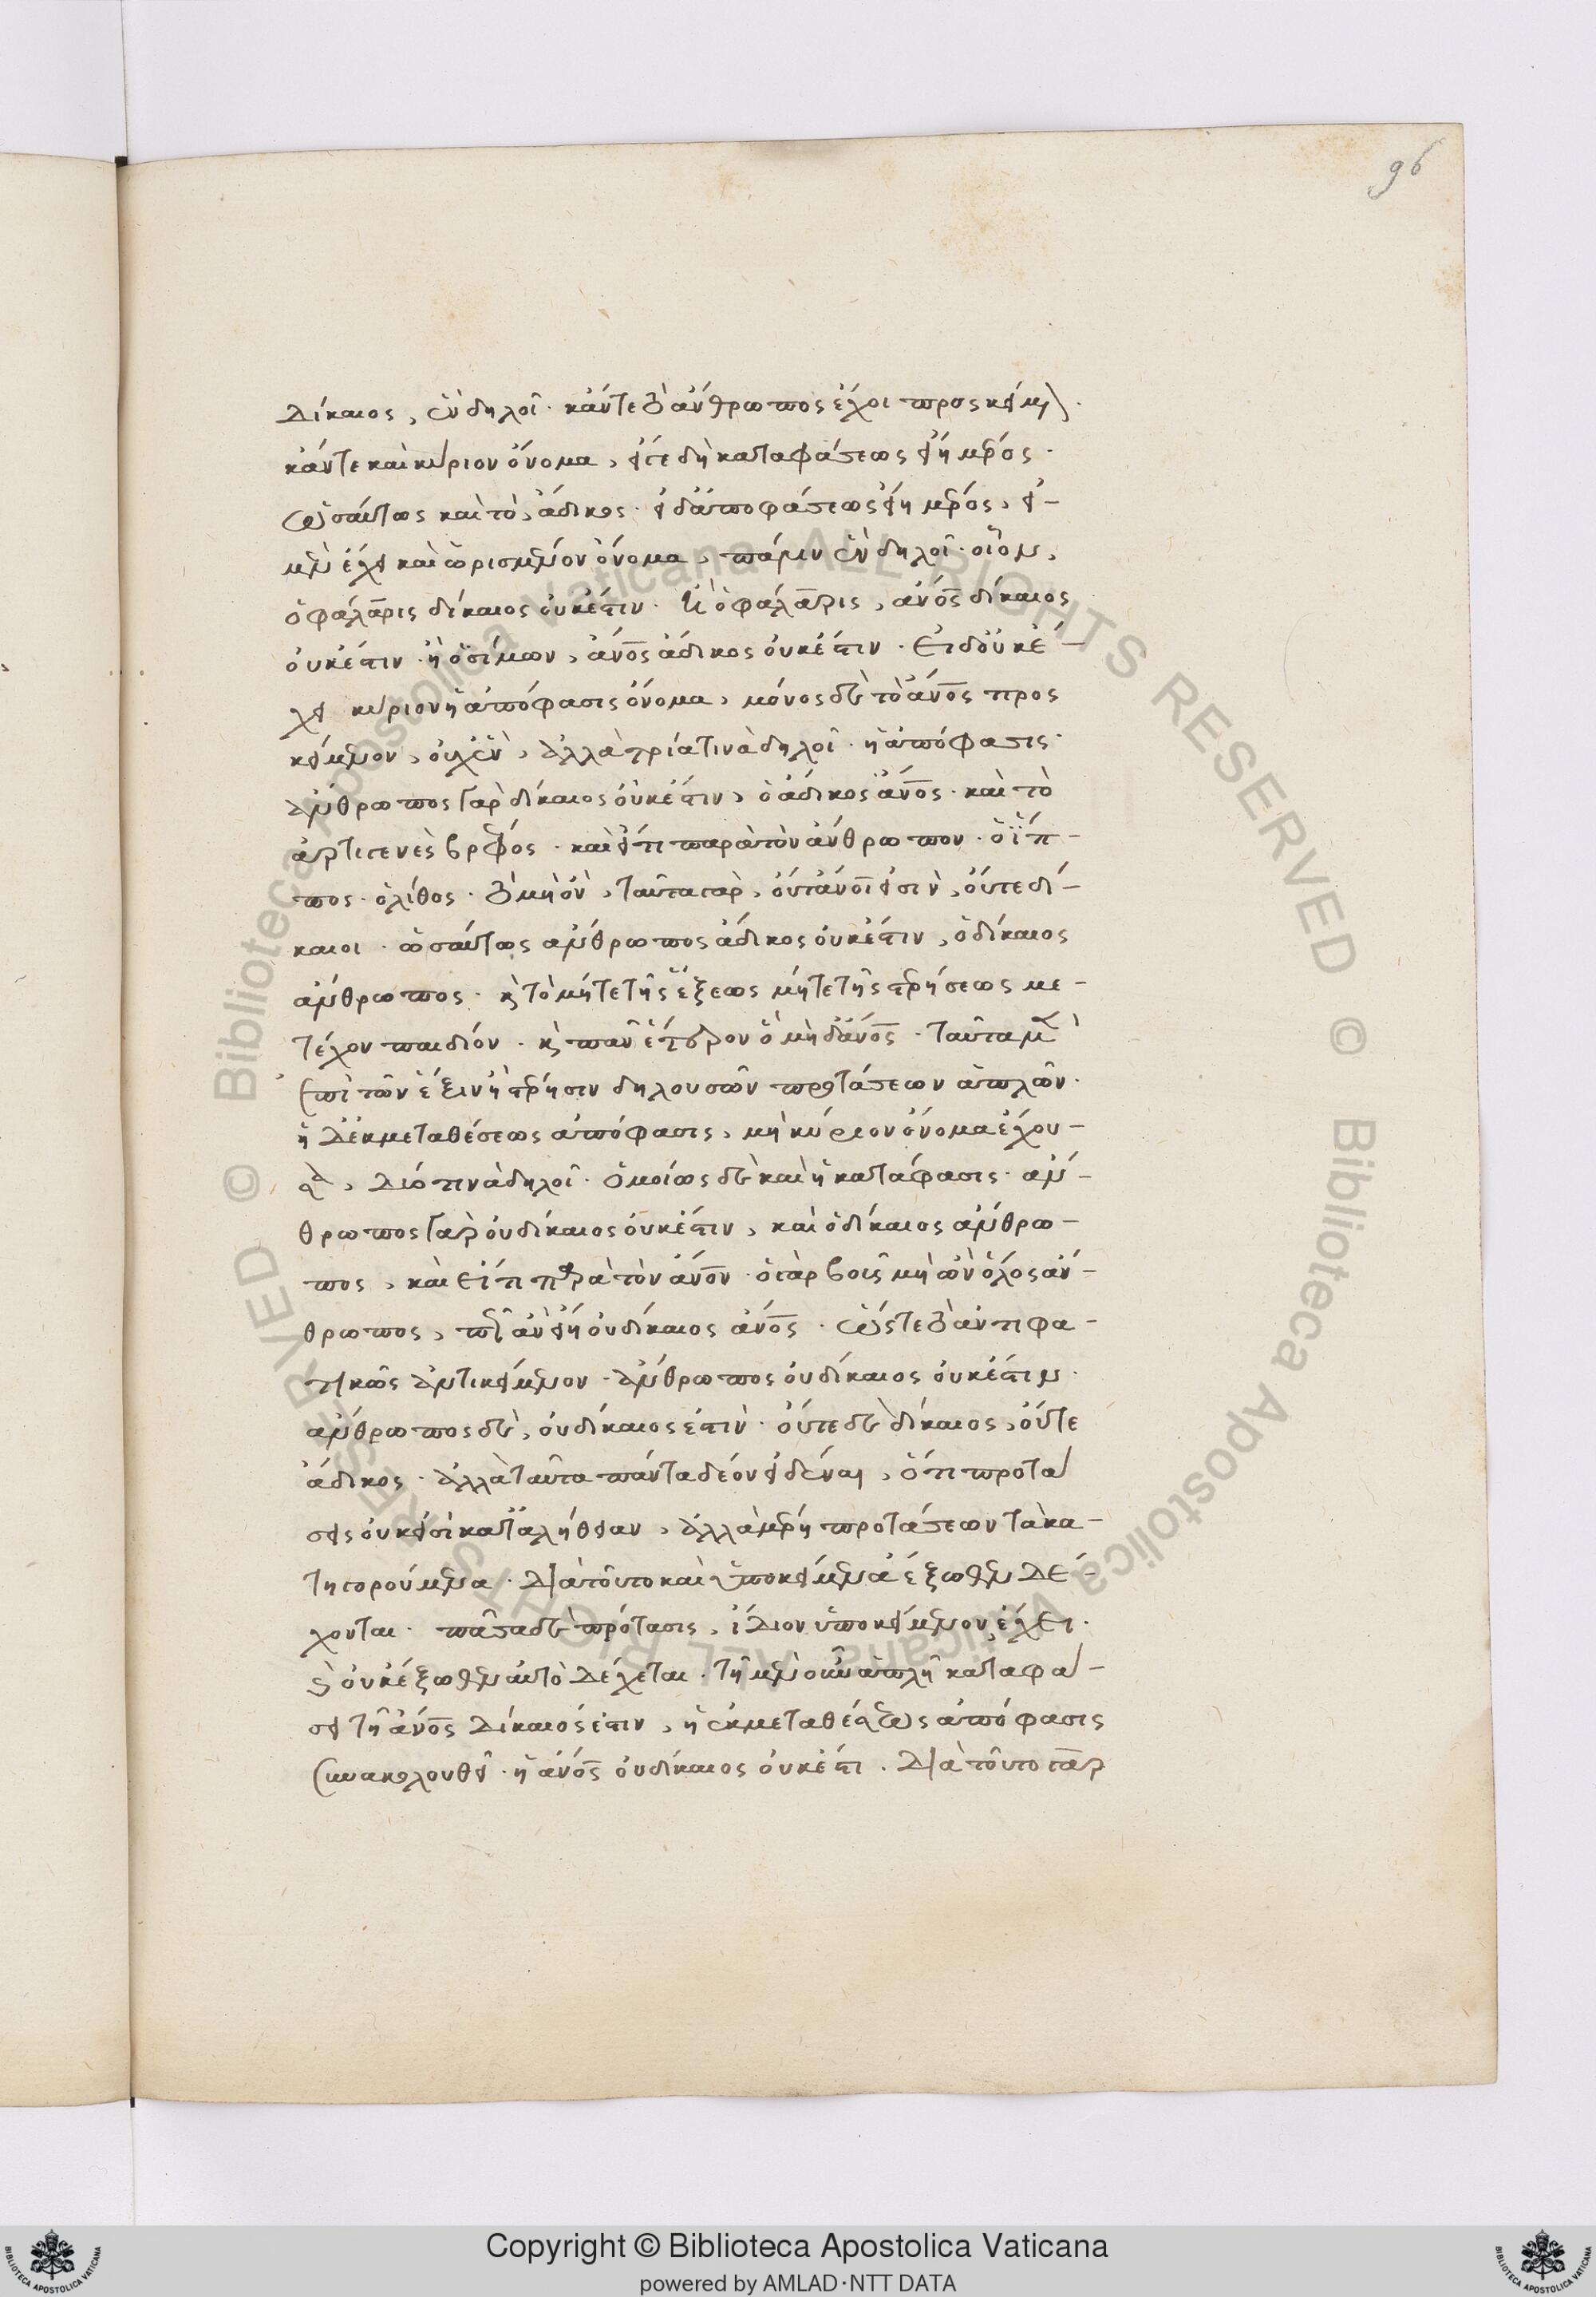 96
δίκαιος, ἓν δηλοῖ. κἄντε τὸ ἄνθρωπος ἔχοι προσκείμενον.
κἄντε καὶ κύριον ὄνομα, εἴτε δὴ καταφάσεως εἴη μέρος.
ὡσαύτως καὶ τὸ, ἄδικος. εἰ δ' ἀποφάσεως εἴη μέρος, εἰ
μὲν ἔχει καὶ ὡρισμένον ὄνομα, πάλιν ἓν δηλοῖ. οἷον,
ὁ φάλαρις δίκαιος οὐκ ἔστιν. ἢ ὁ φάλαρις, ἄνος δίκαιος
οὐκ ἔστιν. ἢ ὁ σίμων, ἄνος ἄδικος οὐκ ἔστιν. εἰ δ' οὐκ ἔ-
χει κύριον ἡ ἀπόφασις ὄνομα, μόνος δὲ τὸ ἄνος προς
κείμενον, οὐχ ἓν, ἀλλὰ τρία τινὰ δηλοῖ. ἡ ἀπόφασις.
ἄνθρωπος γὰρ δίκαιος οὐκ ἔστιν, ὁ ἄδικος ἄνος. καὶ τὸ
ἀρτιγενὲς βρέφος. καὶ εἴ τι παρὰ τὸν ἄνθρωπον. ὁ ἵπ-
πος. ὁ λίθος. τὸ μὴ ὂν, ταῦτα γὰρ, οὔτ' ἄνοι εἰσὶν, οὔτε δί-
καιοι. ὡσαύτως ἄνθρωπος ἄδικος οὐκ ἔστιν, ὁ δίκαιος
ἄνθρωπος. κὶ τὸ μήτε τῆς ἕξεως μήτε τῆς στερήσεως με-
τέχον παιδίον. κὶ πᾶν ἕτερον ὃ μηδ' ἄνος. ταῦτα μὲν
ἐπὶ τῶν ἕξιν ἢ στέρησιν δηλουσῶν προτάσεων ἁπλῶν.
ἡ δ' ἐκ μεταθέσεως ἀπόφασις, μὴ κύριον ὄνομα ἔχου-
σα, δύο τινὰ δηλοῖ. ὁμοίως δὲ καὶ ἡ κατάφασις. ἄν-
θρωπος γὰρ οὐ δίκαιος οὐκ ἔστιν, καὶ ὁ δίκαιος ἄνθρω-
πος, καὶ εἴ τι παρὰ τὸν ἄνον. ὁ γὰρ βοῦς μὴ ὢν ὅλος ἄν-
θρωπος, πῶς ἂν εἴη οὐ δίκαιος ἄνος. ὥστε τὸ ἀντιφα-
τικῶς ἀντικείμενον. ἄνθρωπος οὐ δίκαιος οὐκ ἔστιν.
ἄνθρωπος δὲ, οὐ δίκαιος ἐστὶν. οὔτε δὲ δίκαιος, οὔτε
ἄδικος. ἀλλὰ ταῦτα πάντα δέον εἰδέναι, ὅτι προτά
σεις οὐκ εἰσὶ κατ' ἀλήθειαν, ἀλλὰ μέρη προτάσεων τὰ κα-
τηγορούμενα. διὰ τοῦτο καὶ ὑποκείμενα ἔξωθεν δέ-
χονται. πᾶσα δὲ πρότασις, ἴδιον ὑποκείμενον ἔχει.
κὶ οὐκ ἔξωθεν αὐτὸ δέχεται. τῇ μὲν οὖν ἁπλῇ καταφά-
σει τῇ ἄνος δίκαιος ἔστιν, ἡ ἐκ μεταθέσεως ἀπόφασις
συνακολουθεῖ. ἡ ἄνος οὐ δίκαιος οὐκ ἔστι. διὰ τοῦτο γὰρ
Biblioteca Apostolica Vaticana ALL RIGHTS RESERVED ©
Copyright © Biblioteca Apostolica Vaticana
powered by AMLAD·NTT DATA